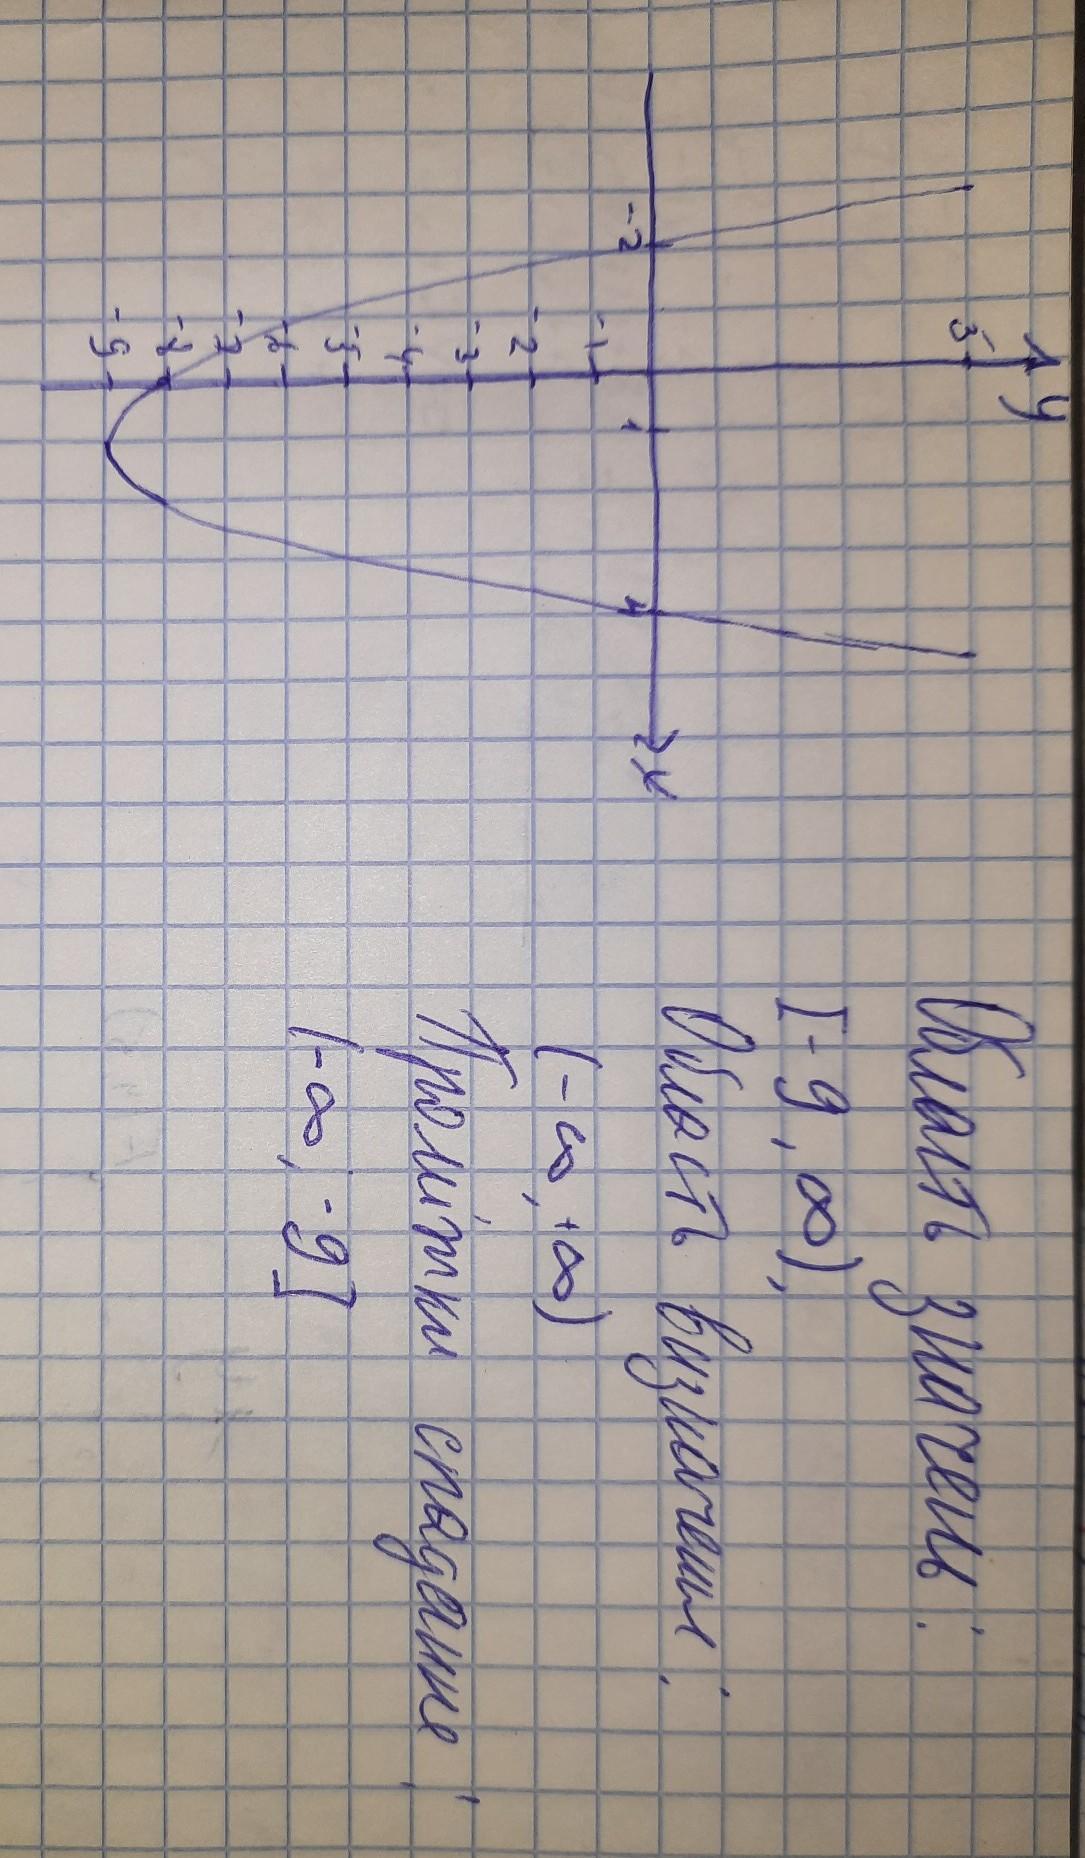 y
5
-2
1
4
x
-1
-2
-3
-4
-5
-6
-7
-8
-9
Область значень:
[-9, ∞),
Область визначення:
(-∞, +∞)
Проміжки спадание:
(-∞, -9]